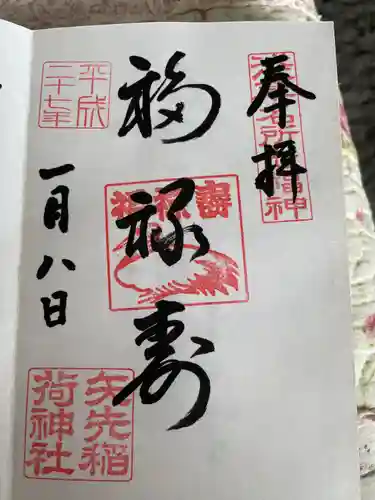 奉拝
福禄寿
壽祿福
平成
二十七年
一月八日
矢先稲
荷神社